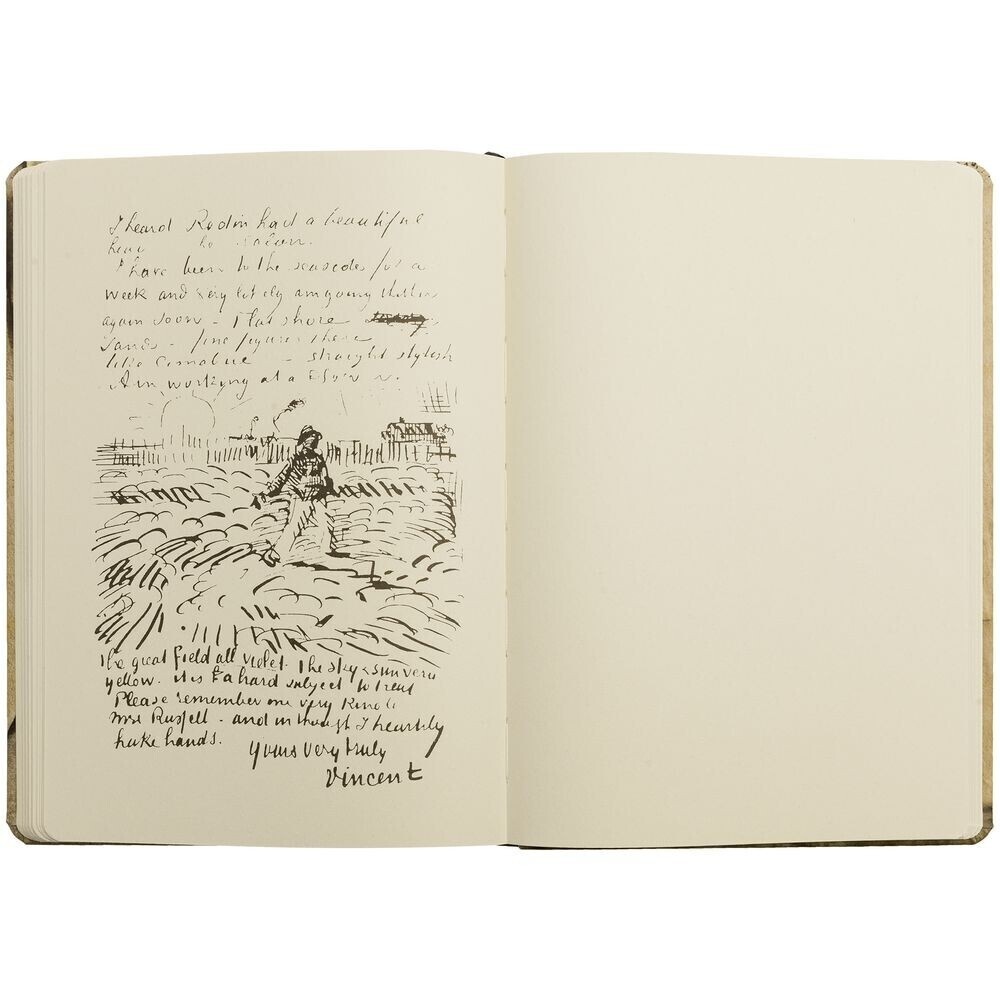 I heard Rodin had a beautiful
head
I have been to the seaside for a
week and very likely am going thither
again soon – Flat shore
sands – fine figures there
like Cimabue – straight stylish
Am working at a Sower.
the great field all violet. the sky & sun very
yellow. it is a hard subject to treat
Please remember me very kindly
Mrs Russell – and in thought I heartily
hake hands.
Yours very truly
Vincent